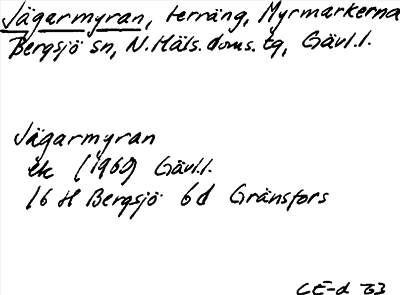 Jägarmyran, terräng, Myrmarkerna
Bergsjö sn, N. Häls. doms. tg, Gävl.l.
Jägarmyran
ek (1960) Gävl.l.
16 H Bergsjö 6d Gränsfors
CE-d 73